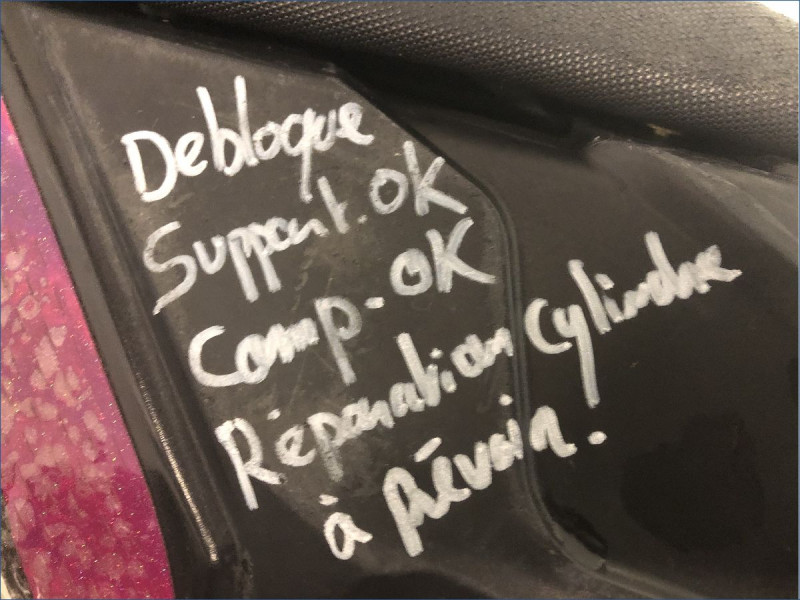 Debloque
Support. OK
Comp. OK
Réparation Cylindre
à prévoir.